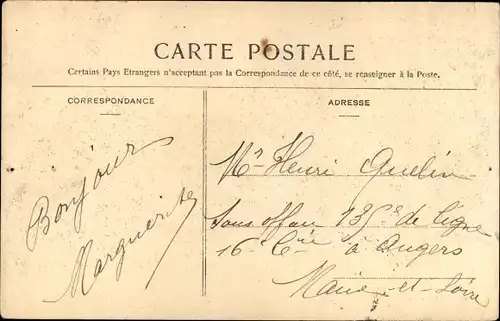 CARTE POSTALE
Certains Pays Etrangers n'acceptant pas la Correspondance de ce côté, se renseigner à la Poste.
CORRESPONDANCE
Bonjour
Marguerite
ADRESSE
Mr Henri Guelin
Sous off au 135e de ligne
16e Cie à Angers
Maine-et-Loire